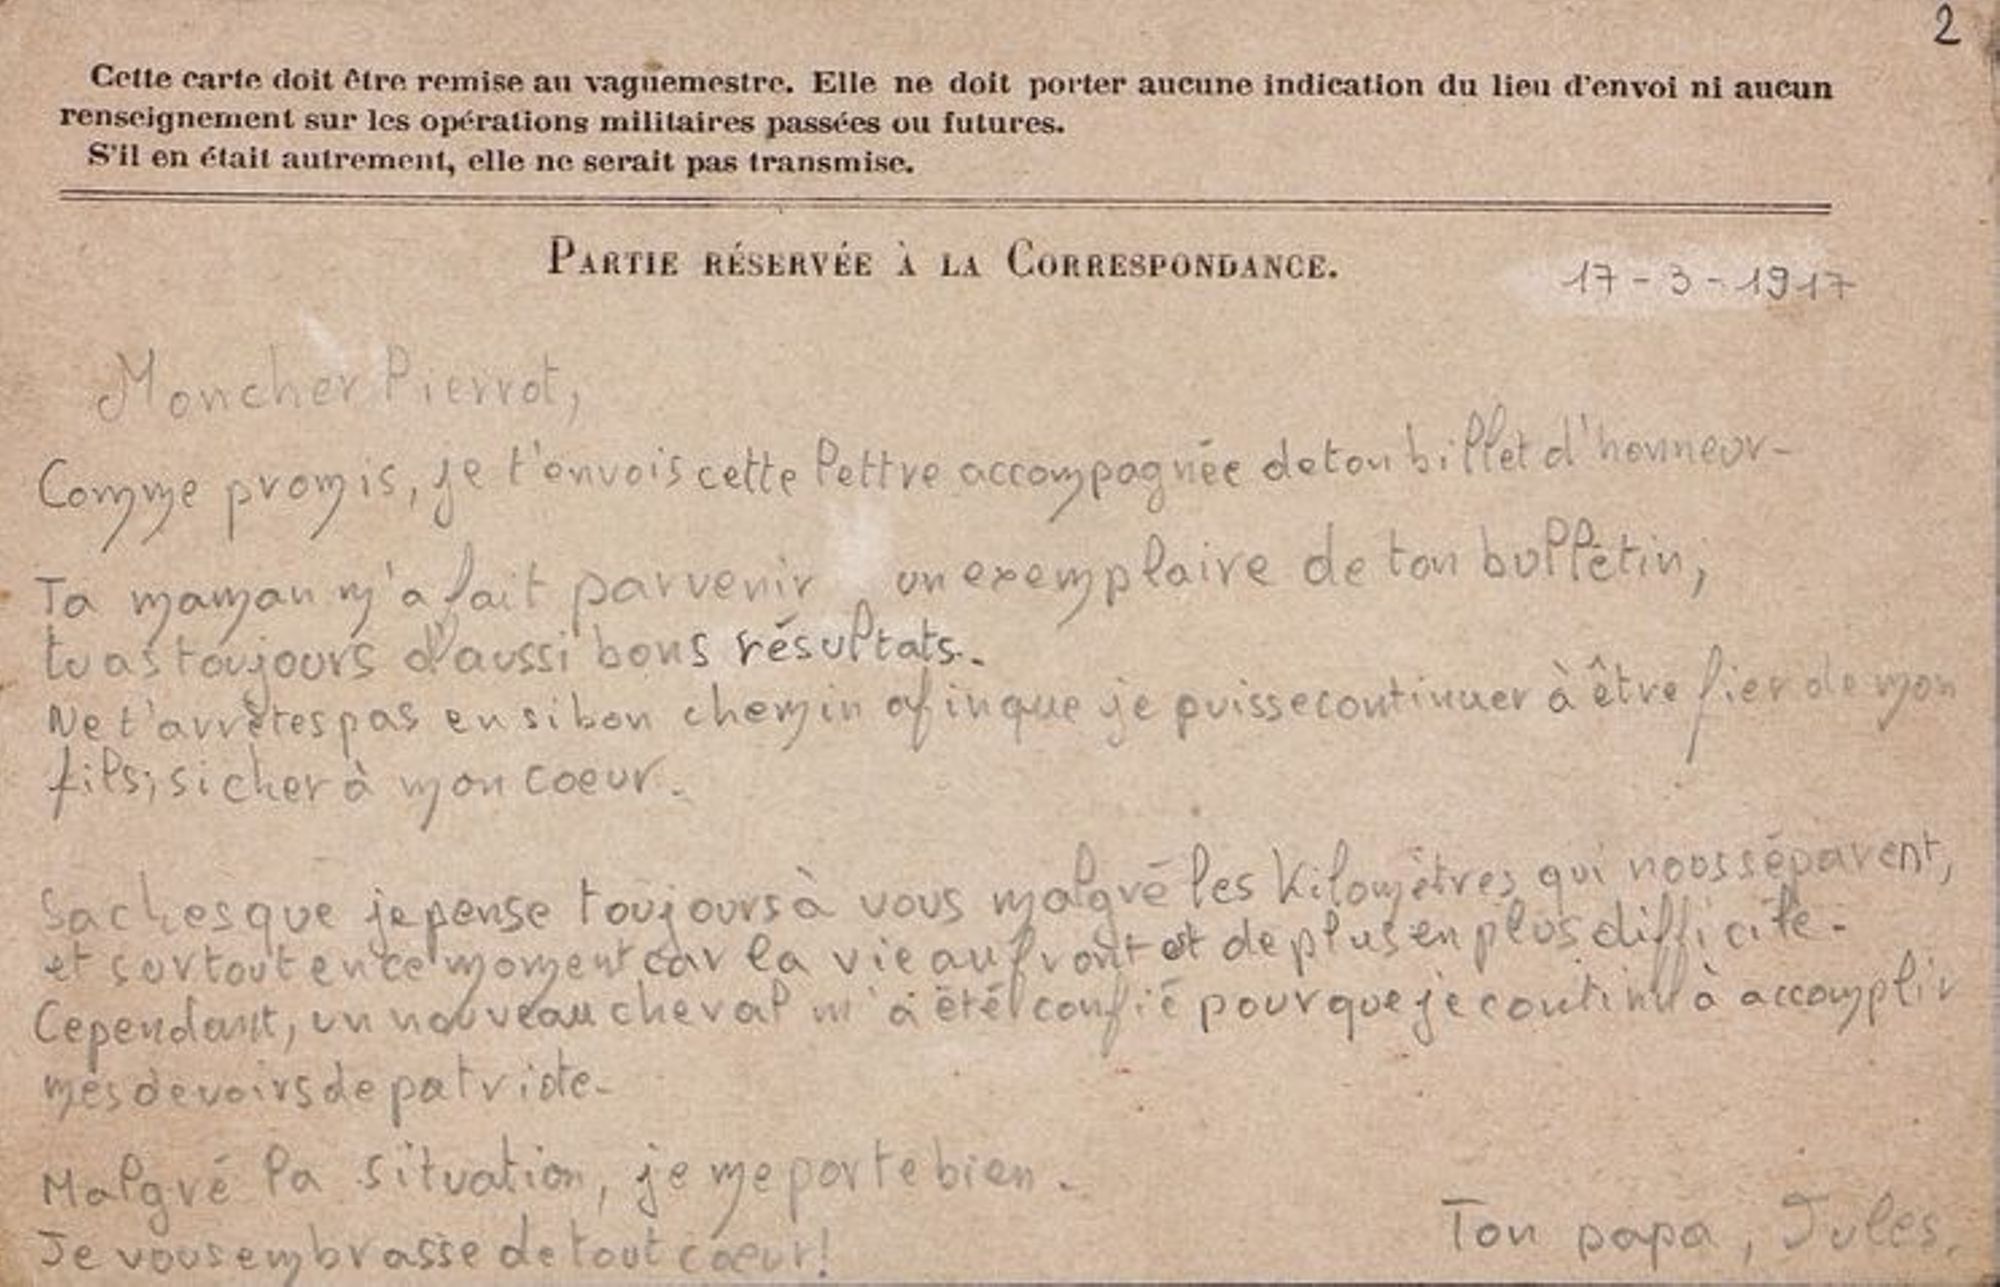 2
Cette carte doit être remise au vaguemestre. Elle ne doit porter aucune indication du lieu d'envoi ni aucun
renseignement sur les opérations militaires passées ou futures.
S'il en était autrement, elle ne serait pas transmise.
PARTIE RÉSERVÉE À LA CORRESPONDANCE.
17-3-1917
Mon cher Pierrot,
Comme promis, je t'envois cette lettre accompagnée de ton billet d'honneur-
Ta maman m'a fait parvenir un exemplaire de ton bulletin,
tu as toujours d'aussi bons résultats.
Ne t'arrêtes pas en si bon chemin afin que je puisse continuer à être fier de mon
fils, si cher à mon coeur.
Saches que je pense toujours à vous malgré les kilomètres qui nous séparent,
et surtout en ce moment car la vie au front est de plus en plus difficile.
Cependant, un nouveau cheval m'a été confié pour que je continu à accomplir
mes devoirs de patriote.
Malgré la situation, je me porte bien.
Je vous embrasse de tout coeur!
Ton papa, Jules.